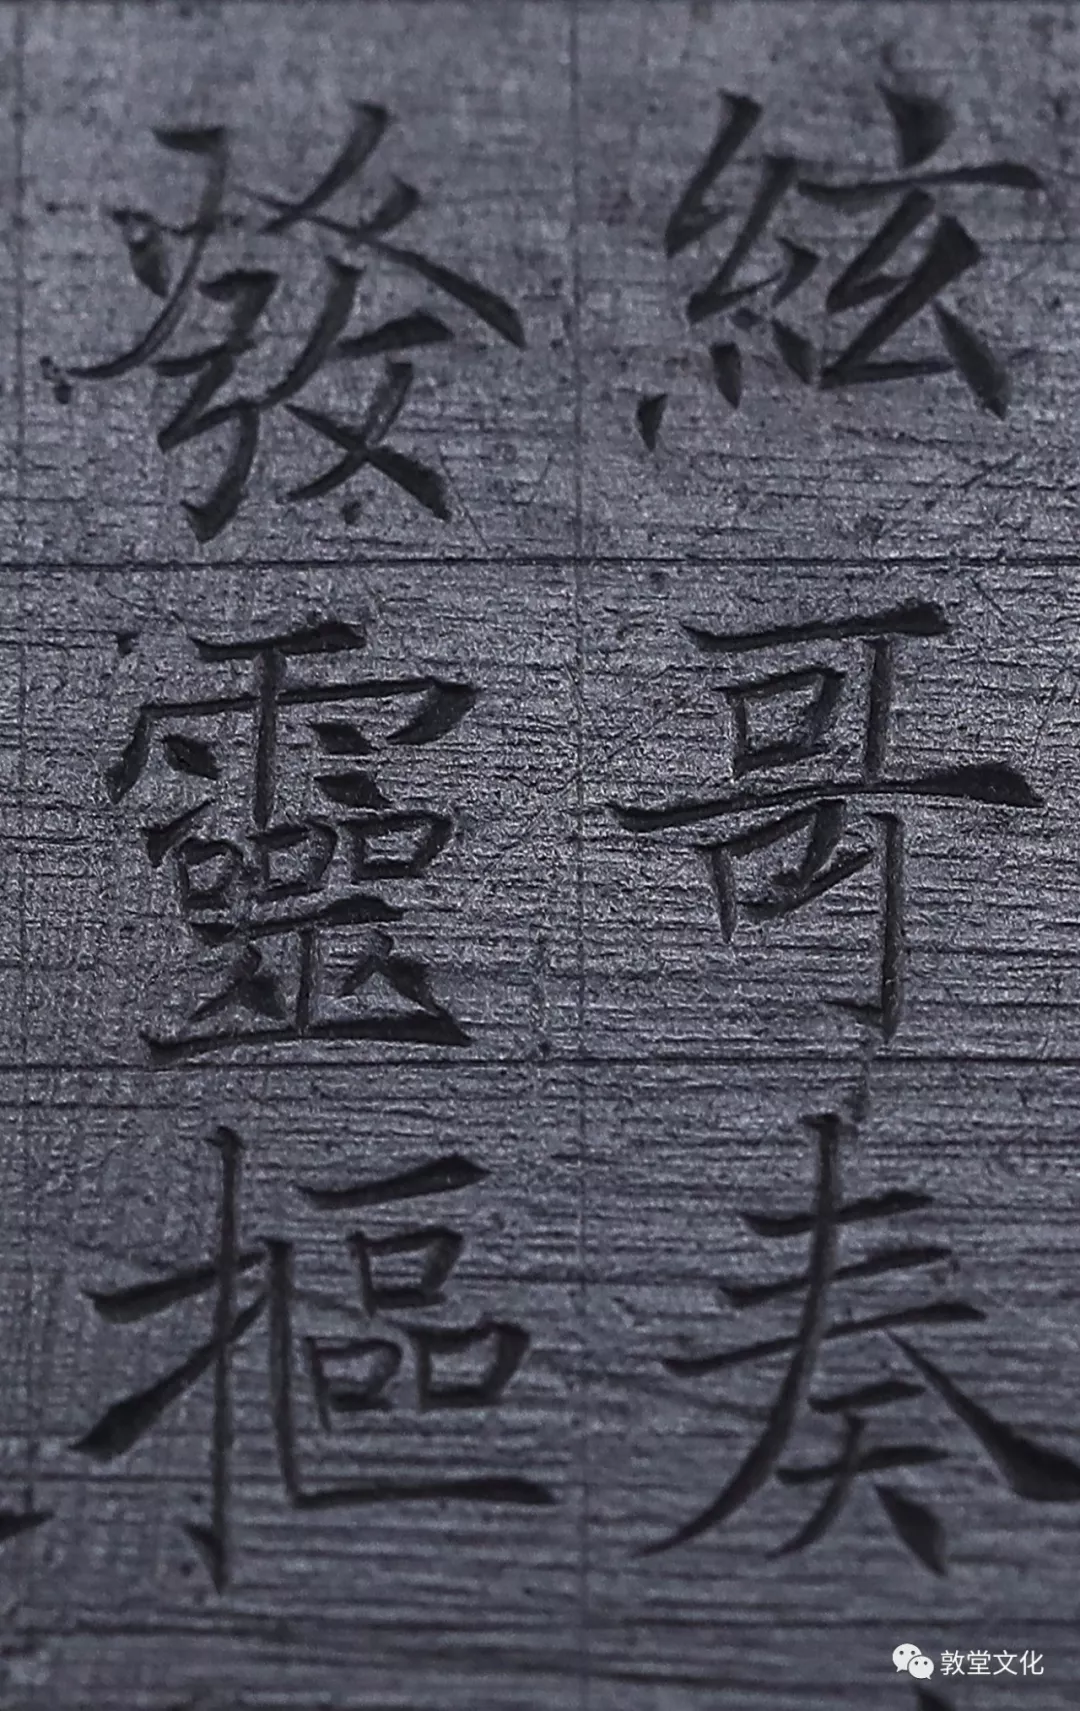 絃哥奏
發靈摳
敦堂文化